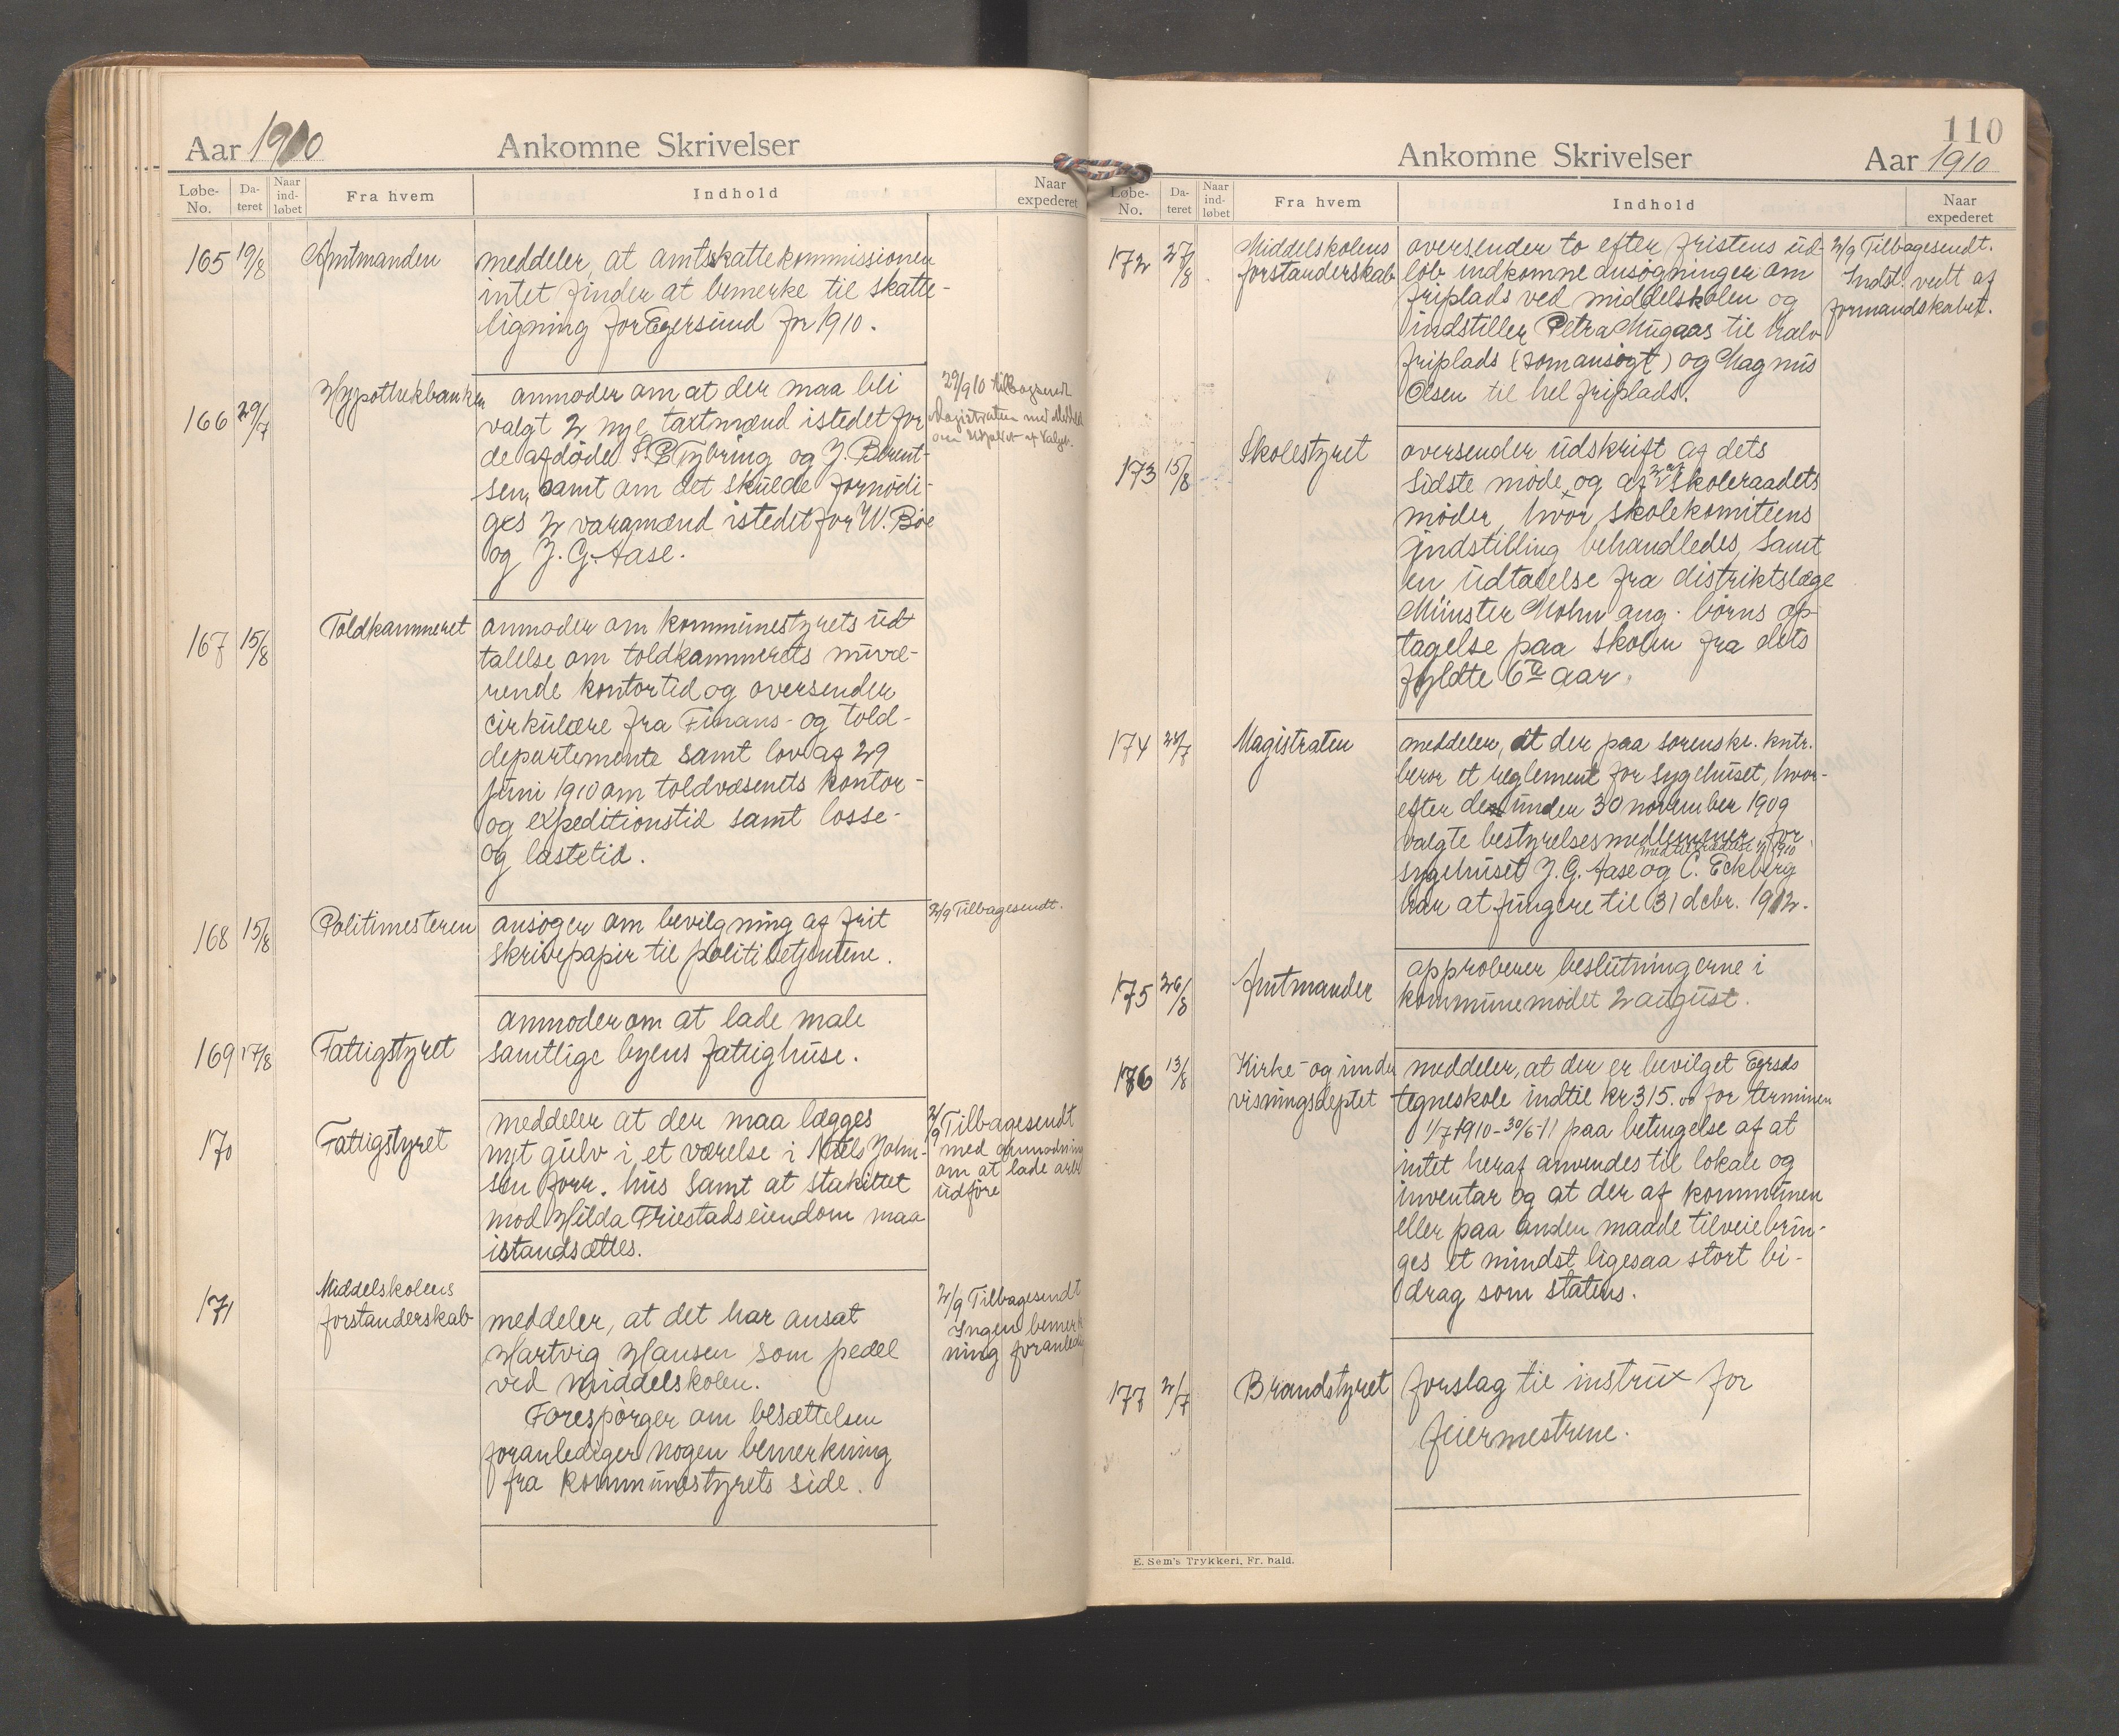 Aar 1910
Ankomne Skrivelser
Løbe-No.
Da-teret
Naar ind-løbet
Fra hvem
Indhold
Naar expederet
165 19/8 Amtmanden
meddeler, at amtsskattekommissionen
intet finder at bemerke til skatte-
ligning for Egersund for 1910.
166 29/7 Hypothekbanken
anmoder om at der maa bli
valgt 2 nye taxtmænd istedet for
de afdøde P. B. Tybring og J. Berent-
sen, samt om det skulde fornødi-
ges 2 varamænd istedet for W. Bøe
og J. G. Aase.
29/9 10 tilbagesendt
Magistraten med
om af Valget.
167 15/8 Toldkammeret
anmoder om kommunestyrets ud-
talelse om toldkammerets nuvæ-
rende kontortid og oversender
cirkulære fra Finans- og told-
departemente samt lov af 29
juni 1910 om toldvæsenets kontor-
og expeditionstid samt losse-
og lastetid.
168 15/8 Politimesteren
ansøger om bevilgning af frit
skrivepapir til politibetjentene.
2/9 Tilbagesendt.
169 17/8 Fattigstyret
anmoder om at lade male
samtlige byens fattighuse.
170 Fattigstyret
meddeler at der maa lægges
nyt gulv i et værelse i Niels John-
sen forr. hus samt at stakittet
mod Hilda Friestads eiendom maa
istandsættes.
2/9 Tilbagesendt
med anmodning
om at lade arb
udføre
171 Middelskolens
forstanderskab
meddeler, at det har ansat
Hartvig Hansen som pedel
ved middelskolen.
Forespørger om besættelsen
foranlediger nogen bemerkning
fra kommunestyrets side.
2/9 Tilbagesendt
Ingen bemerk
ning foranledi
110
Ankomne Skrivelser
Aar 1910
Løbe-No.
Da-teret
Naar ind-løbet
Fra hvem
Indhold
Naar expederet
172 27/8 Middelskolens
forstanderskab
oversender to efter fristens ud-
løb indkomne ansøgninger om
friplads ved middelskolen og
indstiller Petra Mugaas til halv
friplads (som ansøgt) og Magnus
Olsen til hel friplads.
2/9 Tilbagesendt.
Indst. vedt af
formandskabet.
173 15/8 Skolestyret
oversender udskrift af dets
sidste møde, og af 2 skoleraadets
møder, hvor skolekomiteens
indstilling behandledes, samt
en udtalelse fra distriktslæge
Münster Mohn ang. børns op-
tagelse paa skolen fra dets
fyldte 6te aar.
174 28/7 Magistraten
meddeler, at der paa sorenskr. kntr.
beror et reglement for sygehuset, hvor-
efter de under 30 november 1909
valgte bestyrelsesmedlemmer for
med tiltrædelse 1/1 1910
sygehuset J. G. Aase og C. Eckberg
har at fungere til 31 dcbr. 1912.
175 26/8 Amtmanden
approberer beslutningerne i
kommunemødet 2 august.
176 13/8 Kirke- og under
visningsdeptet
meddeler, at der er bevilget Egrsds
tegneskole indtil kr 315.00 for terminen
1/7 1910 - 30/6-11 paa betingelse af at
intet heraf anvendes til lokale og
inventar og at der af kommunen
eller paa anden maade tilveiebrin-
ges et mindst ligesaa stort bi-
drag som statens.
177 2/7 Brandstyret
forslag til instrux for
feiermestrene.
E. Sem's Trykkeri, Fr. hald.